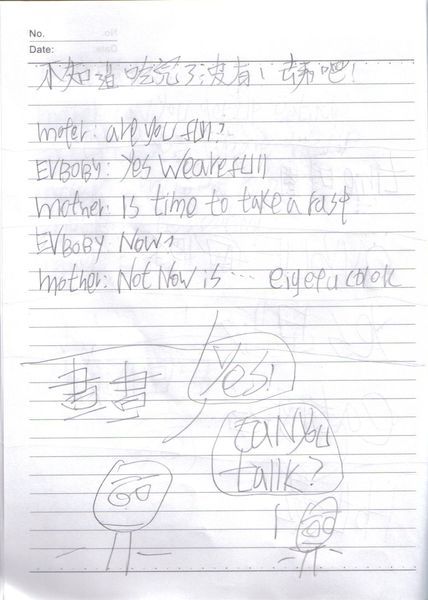 No.
Date:
不知道吃完了沒有! 去吧!
mofer: are you full?
EVBOBY: Yes We are full
mother: Is time to take a rast
EVBOBY: Now?
mother: Not Now is ...
Yes!
書書
can you
tallk?